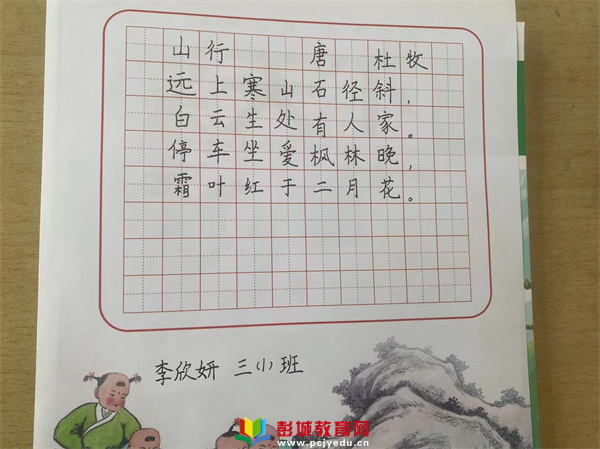 山行 唐 杜牧
远上寒山石径斜，
白云生处有人家。
停车坐爱枫林晚，
霜叶红于二月花。
李欣妍 三小班
彭城教育网
www.pcjyedu.cn